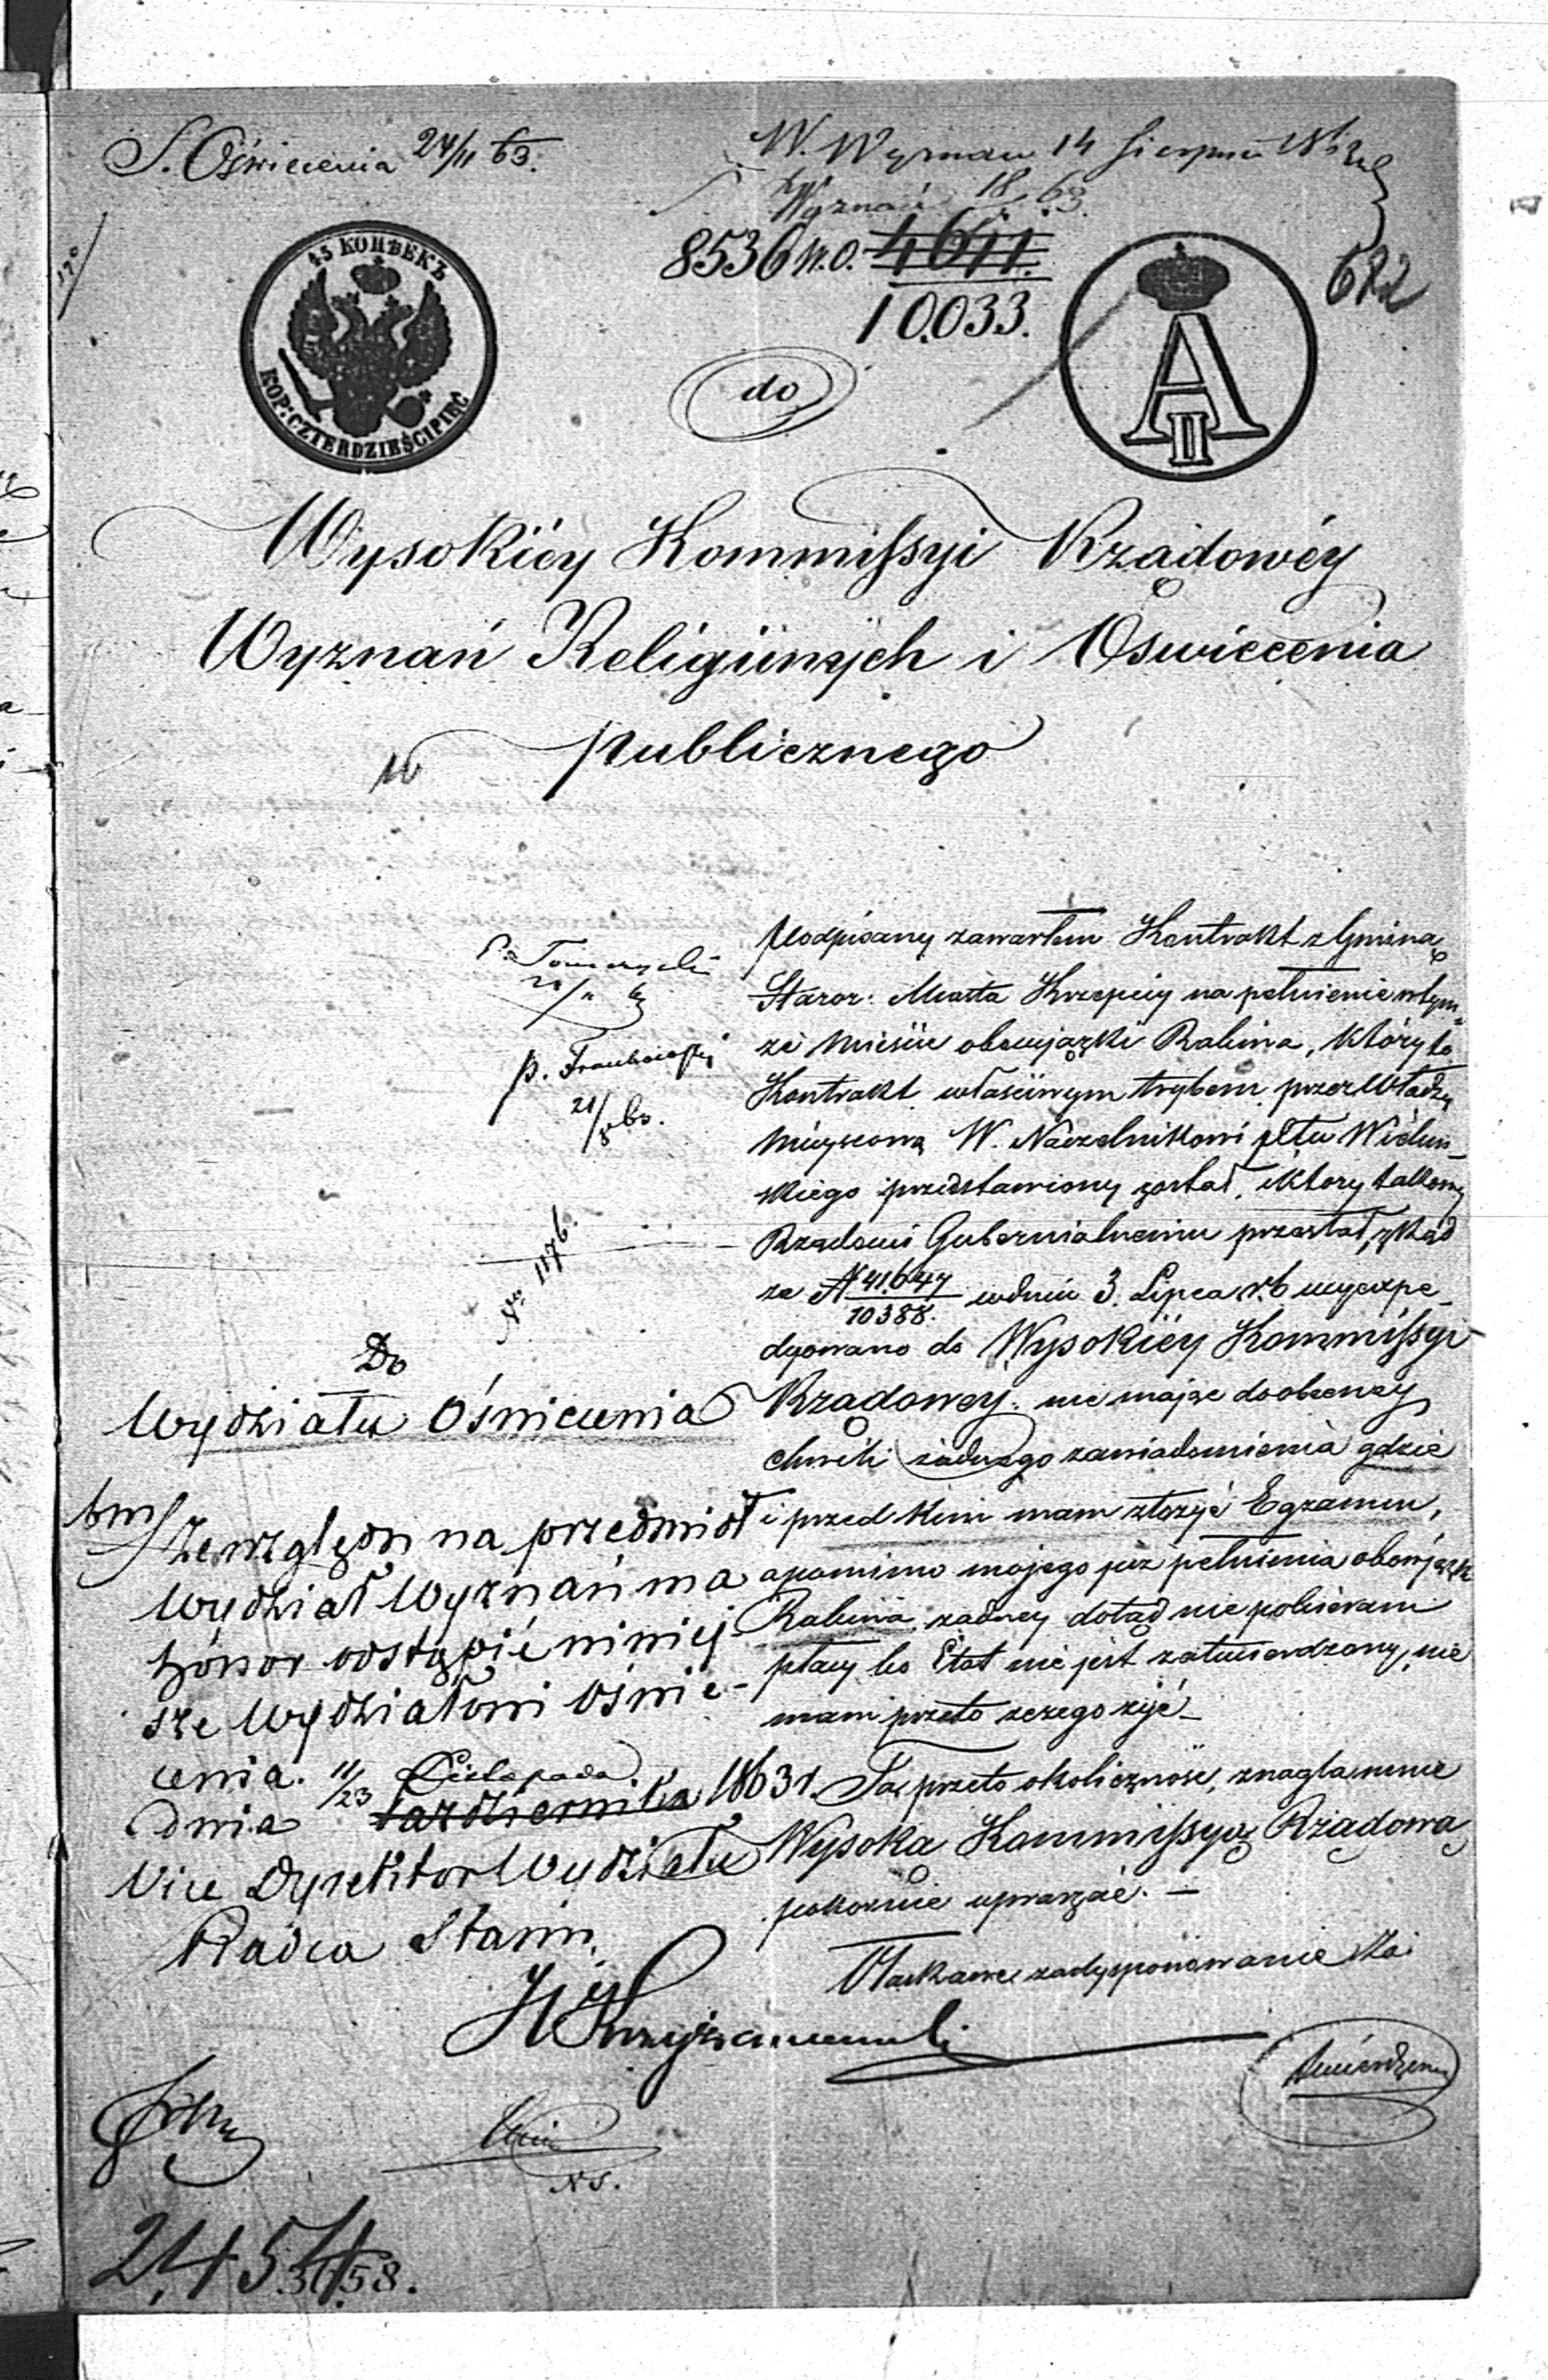 S. Oświecenia 24/11 63.
W. Wyznań 14 Sierpnia 186
Wyznań 18 63.
8536 W.O. 4641.
10.033.
682
45 КОПѢЕКЪ
KOP: CZTERDZIEŚCI PIĘĆ
A II
do
Wysokiéy Kommissyi Rządowéy
Wyznań Religiinych i Oswiecenia
publicznego
Podpisany zawarłem Kontrakt z Gminą
Staroz: Miasta Krzepicy na pełnienie w tym
że mieście obowiązki Rabina, który to
Kontrakt właściwym trybem przez Władzę
Mieyscową W. Naczelnikowi pttu Wielun-
skiego przedstawiony został, który takowy
Rządowi Gubernialnemu przesłał, zkąd
za N 41.647/10388. w dniu 3. Lipca r. b wyexpe-
dyowano do Wysokiéy Kommissyi
Rządowey. nie mając do obecney
chwili żadnego zawiadomienia gdzie
i przed kim mam złożyć Egzamin,
a pomimo mojego już pełnienia obowjązk
Rabina żadney dotąd nie pobieram
płacy bo Etat nie jest zatwierdzony, nie
mam przeto z czego żyć_
Ta przeto okoliczność, znagla mnie
Wysoką Kommissyą Rządową
pokornie upraszać. —
O łaskawe zadysponowanie
21/8 63.
No 1176.
Do
Wydziału Oświecenia
Ze względu na przedmiot
Wydział Wyznań ma
honor odstąpić niniej-
sze Wydziałowi Oświe-
cenia.
dnia 11/23 Listopada Października 1863 r.
Vice Dyrektor Wydziału
Radca Stanu
2454
3658.